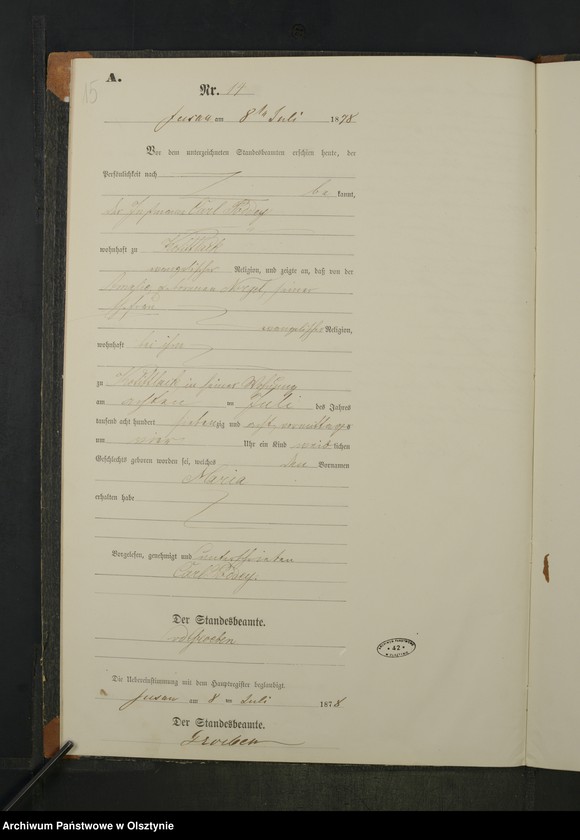 A.
15
Nr. 19
Jusau am 8ten Juli 1878
Vor dem unterzeichneten Standesbeamten erschien heute, der
Persönlichkeit nach
be kannt,
der Carl
wohnhaft zu
evangelischer Religion, und zeigte an, daß von der
geborenen seiner
Ehefrau
evangelischer Religion,
wohnhaft bei ihm
zu in seiner Wohnung
am achten ten Juli des Jahres
tausend acht hundert siebenzig und acht vormittags
um vier Uhr ein Kind weib lichen
Geschlechts geboren worden sei, welches den Vornamen
Maria
erhalten habe
Vorgelesen, genehmigt und unterschrieben
Carl
Der Standesbeamte.
vdGroeben
Die Uebereinstimmung mit dem Hauptregister beglaubigt.
Jusau am 8 ten Juli 1878
Der Standesbeamte.
Groeben
42
Archiwum Państwowe w Olsztynie